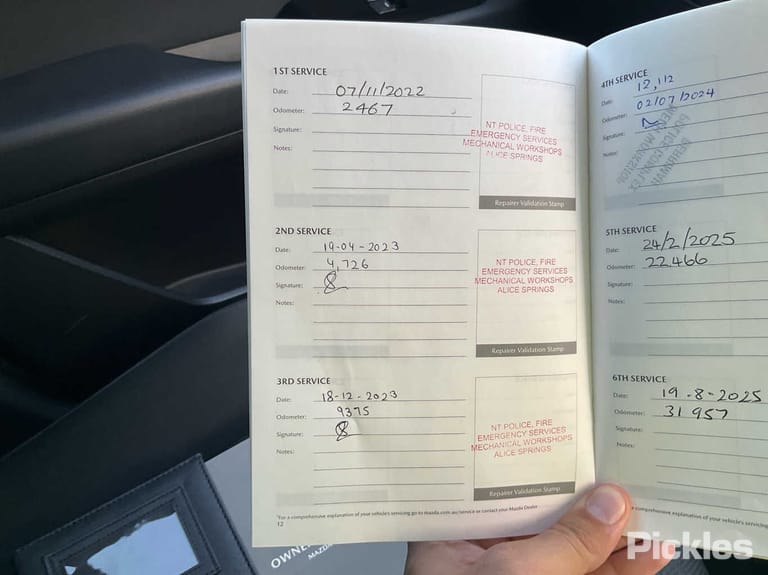 1ST SERVICE
Date: 07/11/2022
Odometer: 2467
Signature:
Notes:
NT POLICE, FIRE
EMERGENCY SERVICES
MECHANICAL WORKSHOPS
ALICE SPRINGS
Repairer Validation Stamp
2ND SERVICE
Date: 19-04-2023
Odometer: 4,726
Signature:
Notes:
NT POLICE, FIRE
EMERGENCY SERVICES
MECHANICAL WORKSHOPS
ALICE SPRINGS
Repairer Validation Stamp
3RD SERVICE
Date: 18-12-2023
Odometer: 9375
Signature:
Notes:
NT POLICE, FIRE
EMERGENCY SERVICES
MECHANICAL WORKSHOPS
ALICE SPRINGS
Repairer Validation Stamp
*For a comprehensive explanation of your vehicle's servicing go to mazda.com.au/service or contact your Mazda Dealer
12
4TH SERVICE
12,112
Date: 02/07/2024
Odometer:
Signature:
Notes:
5TH SERVICE
Date: 24/2/2025
Odometer: 22466
Signature:
Notes:
6TH SERVICE
Date: 19-8-2025
Odometer: 31 957
Signature:
Notes:
a comprehensive explanation of your vehicle's servicing
OWNE
MAZD
Pickles